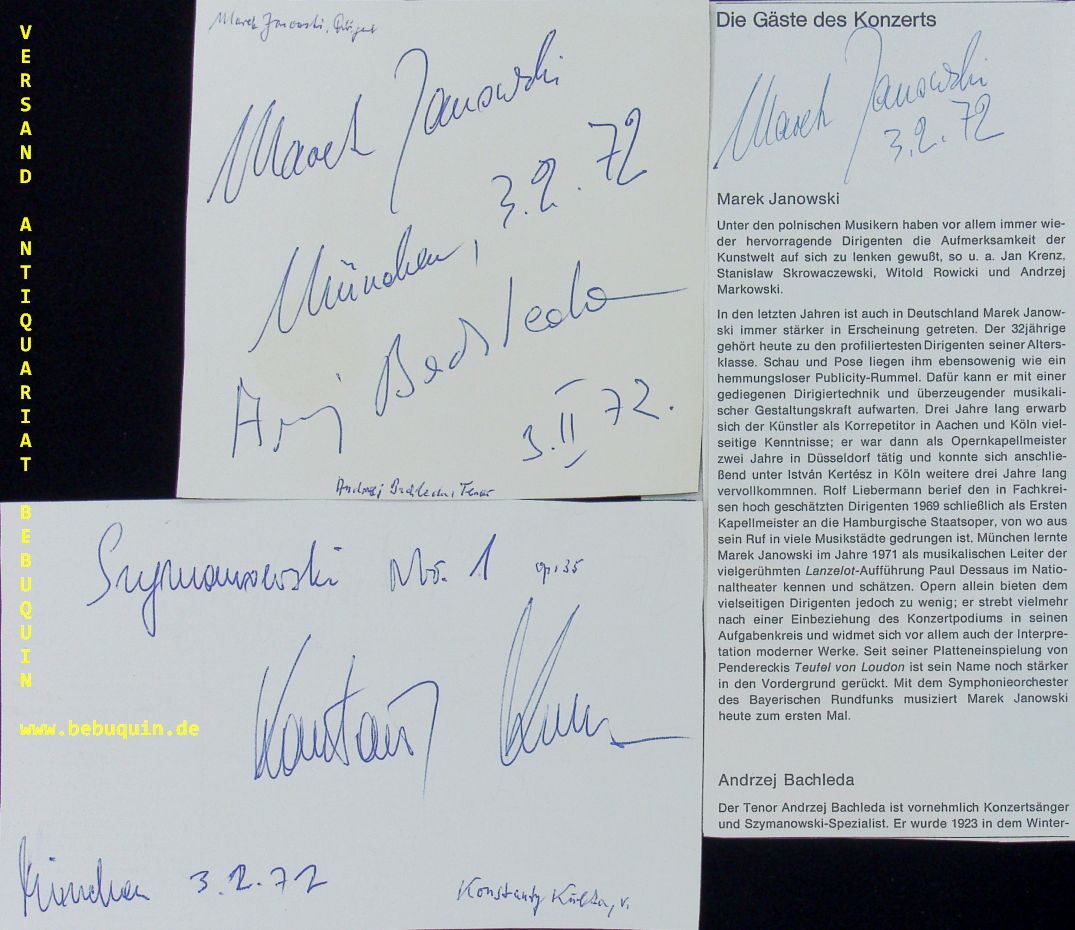 VERSAND ANTIQUARIAT BEBUQUIN
www.bebuquin.de
Marek Janowski, Dirigent
Marek Janowski
3.2.72
München,
Andrzej Bachleda
3.II 72.
Andrzej Bachleda, Tenor
Szymanowski No. 1 op. 35
Konstanty Kulka
München 3.2.72
Konstanty Kulka, v.
Die Gäste des Konzerts
Marek Janowski
3.2.72
Marek Janowski
Unter den polnischen Musikern haben vor allem immer wie-
der hervorragende Dirigenten die Aufmerksamkeit der
Kunstwelt auf sich zu lenken gewußt, so u. a. Jan Krenz,
Stanislaw Skrowaczewski, Witold Rowicki und Andrzej
Markowski.
In den letzten Jahren ist auch in Deutschland Marek Janow-
ski immer stärker in Erscheinung getreten. Der 32jährige
gehört heute zu den profiliertesten Dirigenten seiner Alters-
klasse. Schau und Pose liegen ihm ebensowenig wie ein
hemmungsloser Publicity-Rummel. Dafür kann er mit einer
gediegenen Dirigiertechnik und überzeugender musikali-
scher Gestaltungskraft aufwarten. Drei Jahre lang erwarb
sich der Künstler als Korrepetitor in Aachen und Köln viel-
seitige Kenntnisse; er war dann als Opernkapellmeister
zwei Jahre in Düsseldorf tätig und konnte sich anschlie-
ßend unter István Kertész in Köln weitere drei Jahre lang
vervollkommnen. Rolf Liebermann berief den in Fachkrei-
sen hoch geschätzten Dirigenten 1969 schließlich als Ersten
Kapellmeister an die Hamburgische Staatsoper, von wo aus
sein Ruf in viele Musikstädte gedrungen ist. München lernte
Marek Janowski im Jahre 1971 als musikalischen Leiter der
vielgerühmten Lanzelot-Aufführung Paul Dessaus im Natio-
naltheater kennen und schätzen. Opern allein bieten dem
vielseitigen Dirigenten jedoch zu wenig; er strebt vielmehr
nach einer Einbeziehung des Konzertpodiums in seinen
Aufgabenkreis und widmet sich vor allem auch der Interpre-
tation moderner Werke. Seit seiner Platteneinspielung von
Pendereckis Teufel von Loudon ist sein Name noch stärker
in den Vordergrund gerückt. Mit dem Symphonieorchester
des Bayerischen Rundfunks musiziert Marek Janowski
heute zum ersten Mal.
Andrzej Bachleda
Der Tenor Andrzej Bachleda ist vornehmlich Konzertsänger
und Szymanowski-Spezialist. Er wurde 1923 in dem Winter-